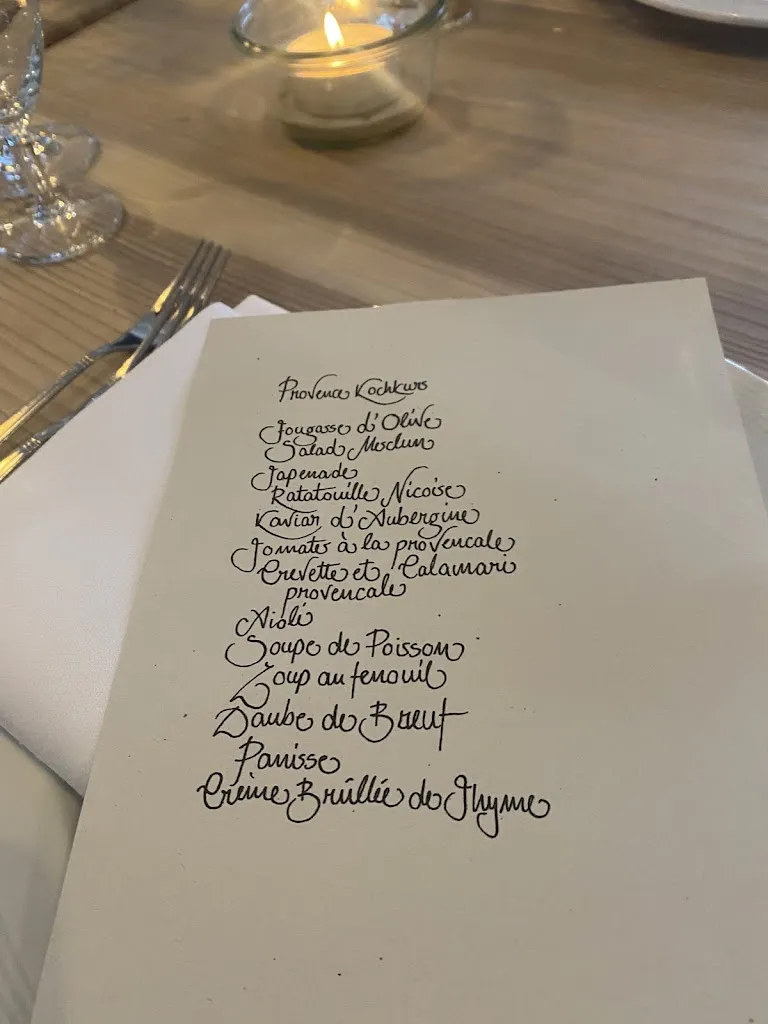 Provence Kochkurs
Fougasse d'Olive
Salad Mesclun
Tapenade
Ratatouille Nicoise
Kaviar d'Aubergine
Tomates à la provencale
Crevette et Calamari
provencale
Aioli
Soupe de Poisson
Loup au fenouil
Daube de Bœuf
Panisse
Crème Brûllée de Thyme